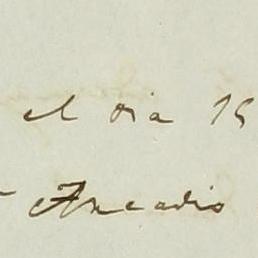 el dia 15
Arcadio